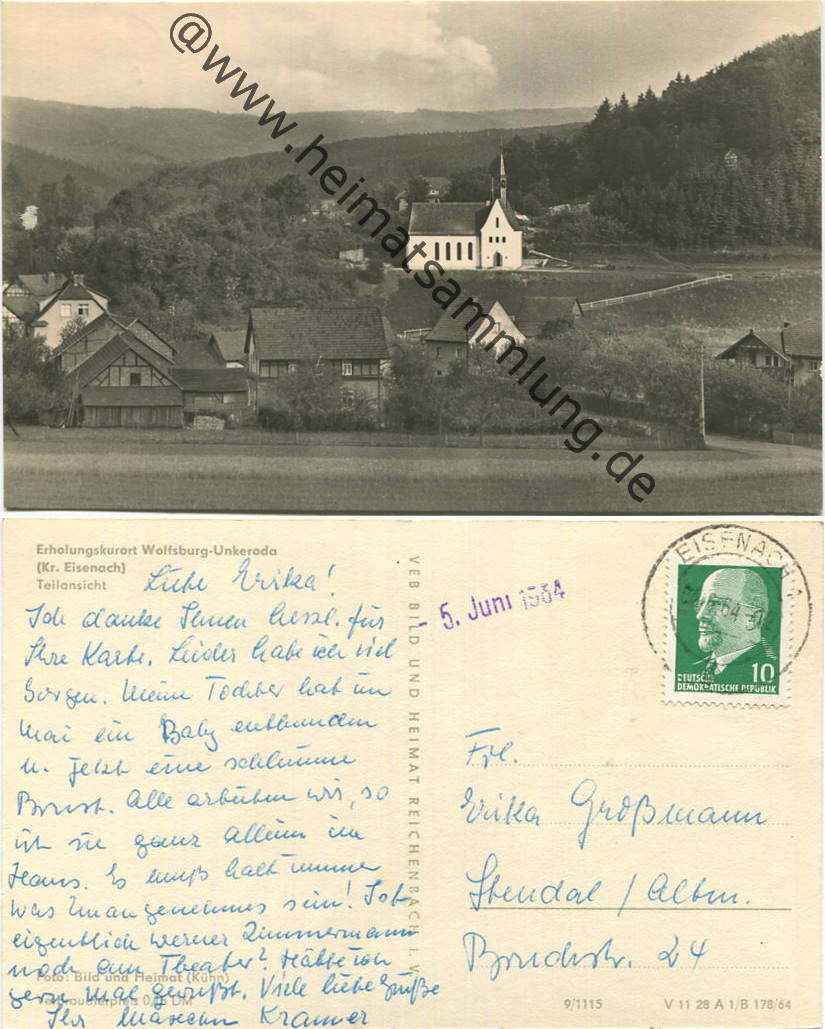 @www.heimatsammlung.de
Erholungskurort Wolfsburg-Unkeroda
(Kr. Eisenach)
Teilansicht
Liebe Erika!
Ich danke Ihnen herzl. für
Ihre Karte. Leider habe ich viel
Sorgen. Meine Tochter hat im
Mai ein Baby entbunden
u. jetzt eine schlimme
Brust. Alle arbeiten wir, so
ist sie ganz allein im
Haus. Es muß halt immer
was Unangenehmes sein! Ist
eigentlich Werner Zimmermann
noch am Theater? Hätte ich
gern mal gewußt. Viele liebe Grüße
Ihr Kramer
Foto: Bild und Heimat (Kühn)
Verbraucherpreis DM
VEB BILD UND HEIMAT REICHENBACH i. V.
- 5. Juni 1964
EISENACH 1
DEUTSCHE
DEMOKRATISCHE REPUBLIK
10
Frl.
Erika Großmann
Stendal / Altm.
Bruchstr. 24
9/1115
V 11 28 A 1/B 178/64